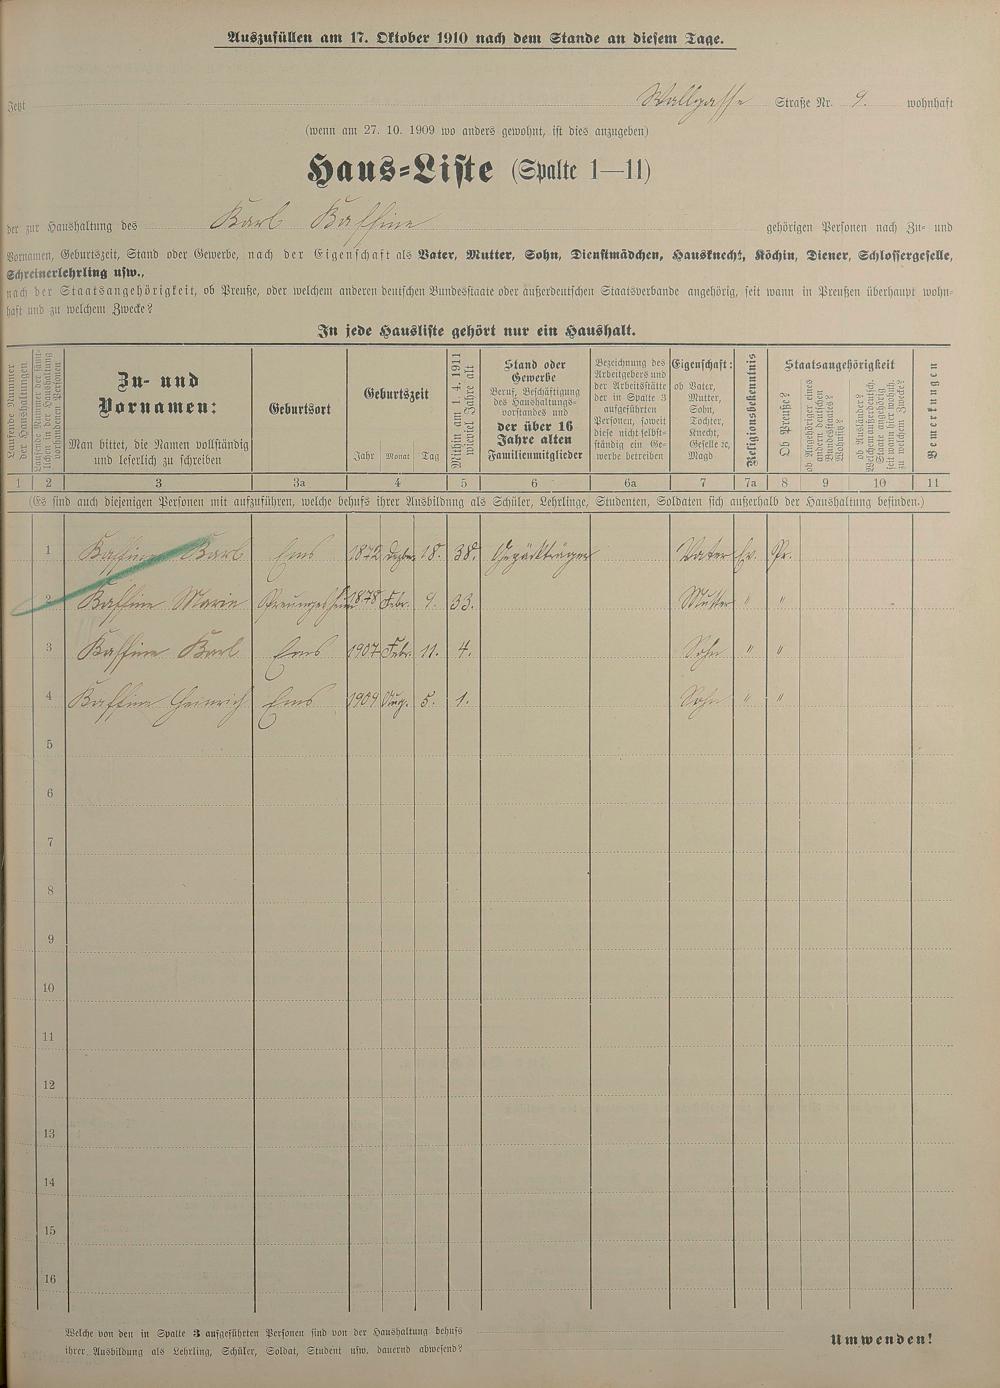 Auszufüllen am 17. Oktober 1910 nach dem Stande an diesem Tage.
Jetzt Wallgasse Straße Nr. 9. wohnhaft
(wenn am 27. 10. 1909 wo anders gewohnt, ist dies anzugeben)
Haus-Liste (Spalte 1—11)
der zur Haushaltung des Karl Kaffine gehörigen Personen nach Zu- und
Vornamen, Geburtszeit, Stand oder Gewerbe, nach der Eigenschaft als Vater, Mutter, Sohn, Dienstmädchen, Hausknecht, Köchin, Diener, Schlossergeselle,
Schreinerlehrling usw.,
nach der Staatsangehörigkeit, ob Preuße, oder welchem anderen deutschen Bundesstaate oder außerdeutschen Staatsverbande angehörig, seit wann in Preußen überhaupt wohn-
haft und zu welchem Zwecke?
In jede Hausliste gehört nur ein Haushalt.
Laufende Nummer
der Haushaltungen
Laufende Nummer der sämt-
lichen in der Haushaltung
vorhandenen Personen
Zu- und
Vornamen:
Man bittet, die Namen vollständig
und leserlich zu schreiben
Geburtsort
Geburtszeit
Jahr Monat Tag
Mithin am 1. 4. 1911
wieviel Jahre alt
Stand oder
Gewerbe
Beruf, Beschäftigung
des Haushaltungs-
vorstandes und
der über 16
Jahre alten
Familienmitglieder
Bezeichnung des
Arbeitgebers und
der Arbeitsstätte
der in Spalte 3
aufgeführten
Personen, soweit
diese nicht selbst-
ständig ein Ge-
werbe betreiben
Eigenschaft:
ob Vater,
Mutter,
Sohn,
Tochter,
Knecht,
Geselle ꝛc.
Magd
Religionsbekenntnis
Staatsangehörigkeit
Ob Preuße?
ob Angehöriger eines
andern deutschen
Bundesstaates?
Welches?
ob Ausländer?
Welchem außerdeutsch.
Staate angehörig,
seit wann hier wohnh.
zu welchem Zwecke?
Bemerkungen
1 2 3 3a 4 5 6 6a 7 7a 8 9 10 11
(Es sind auch diejenigen Personen mit aufzuführen, welche behufs ihrer Ausbildung als Schüler, Lehrlinge, Studenten, Soldaten sich außerhalb der Haushaltung befinden.)
1 Kaffine Karl Ems 1872 Dezbr. 18. 38. Gepäckträger Vater Ev. Pr.
2 Kaffine Marie 1878 Febr. 9. 33. Mutter " "
3 Kaffine Karl Ems 1907 Febr. 11. 4. Sohn " "
4 Kaffine Heinrich Ems 1909 Aug. 5. 1. Sohn " "
5
6
7
8
9
10
11
12
13
14
15
16
Welche von den in Spalte 3 aufgeführten Personen sind von der Haushaltung behufs
ihrer Ausbildung als Lehrling, Schüler, Soldat, Student usw. dauernd abwesend?
Umwenden!